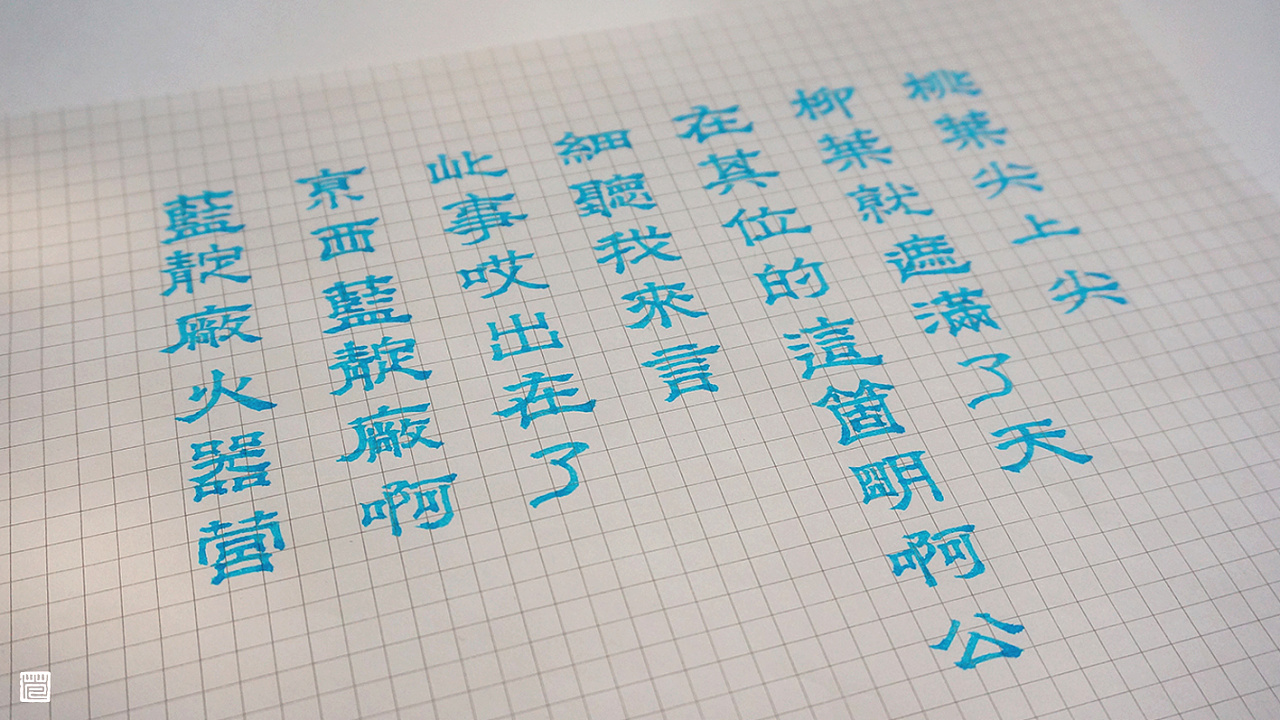 桃葉尖上尖
柳葉就遮滿了天
在其位的這箇明啊公
細聽我來言
此事哎出在了
京西藍靛廠啊
藍靛廠火器營